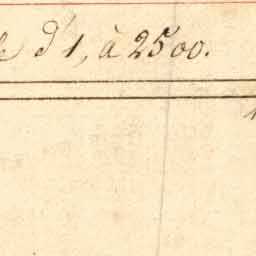 d'1, à 2500.